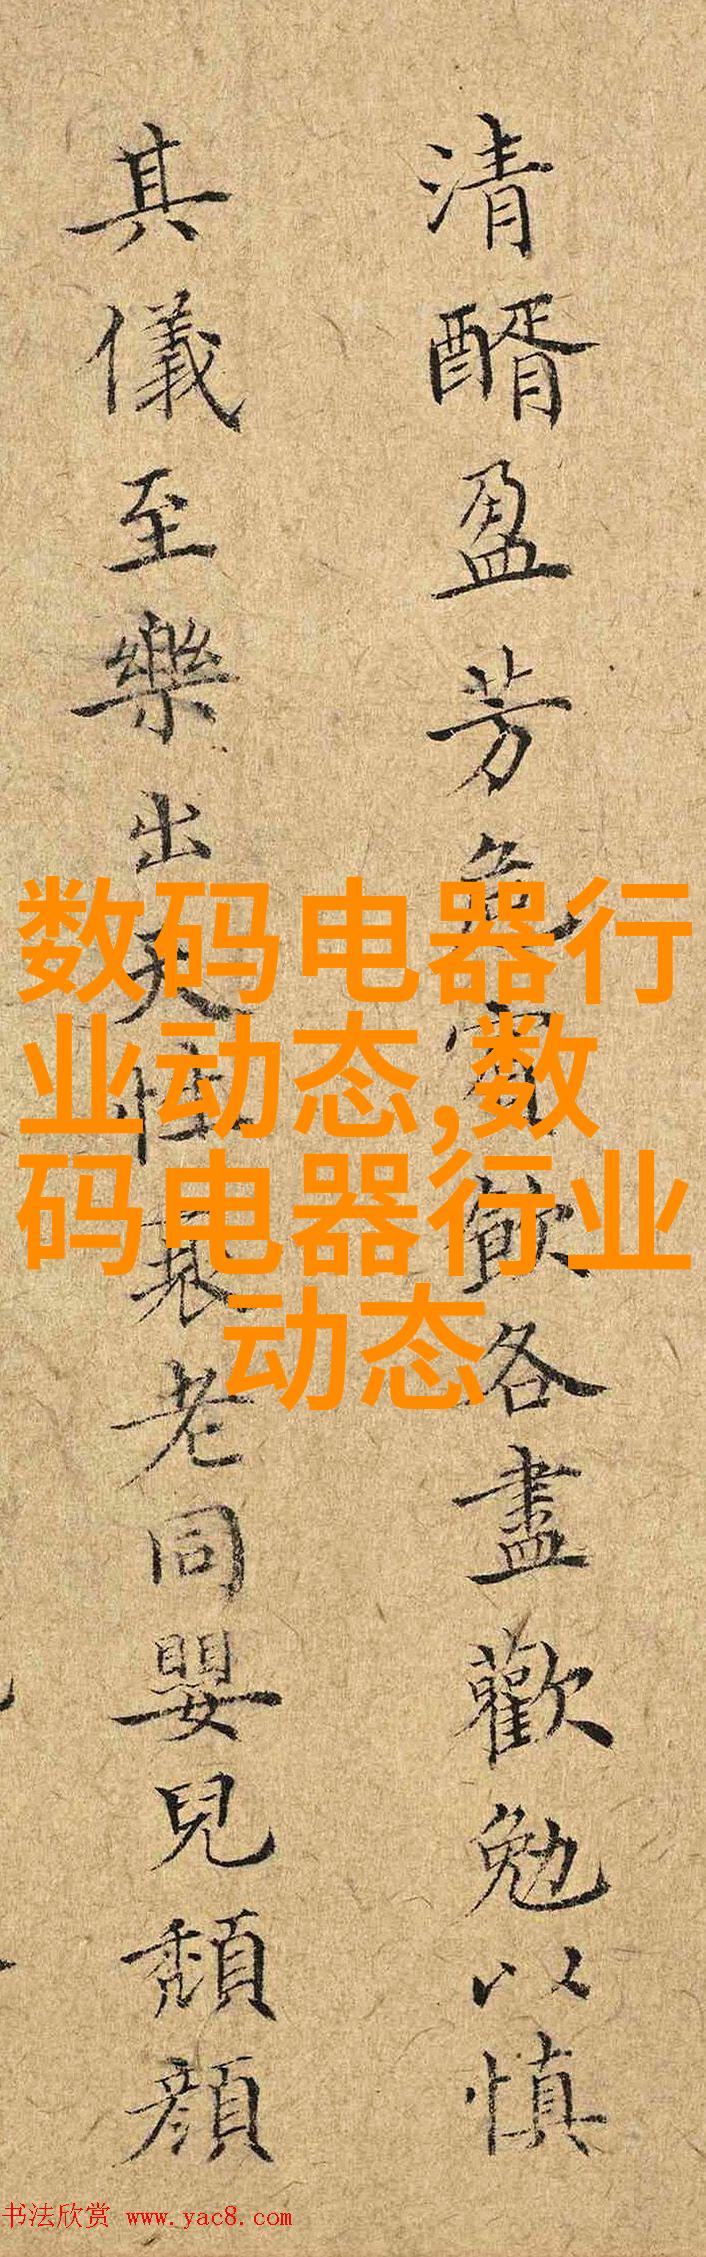 清醑盈芳各盡歡勉以慎
其儀至樂出天性衰老同嬰兒頹顏
数码电器行
业动态,数
码电器行业
动态
书法欣赏 www.yac8.com